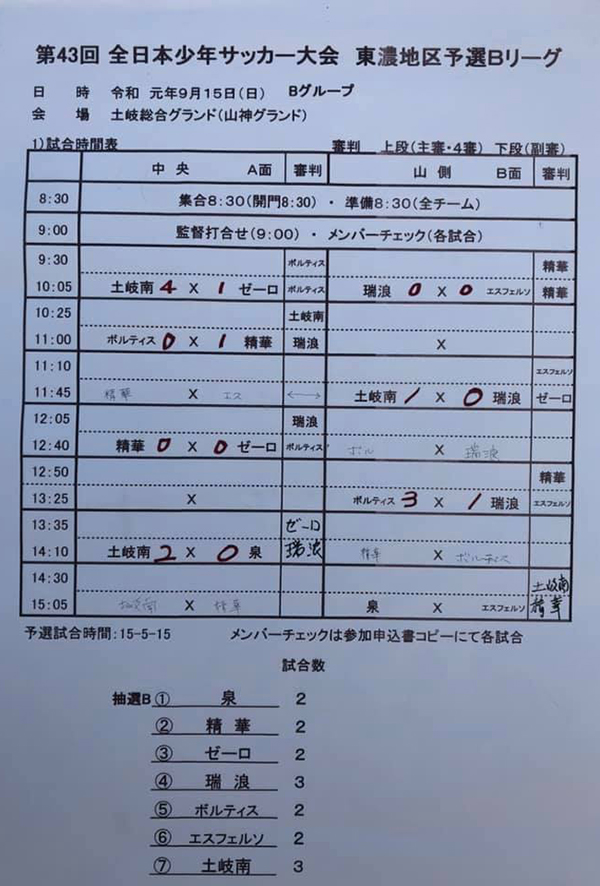 第43回 全日本少年サッカー大会 東濃地区予選Bリーグ
日 時 令和 元年9月15日(日) Bグループ
会 場 土岐総合グランド(山神グランド)
1)試合時間表 審判 上段(主審・4審) 下段(副審)
中 央 A面 審判 山 側 B面 審判
8:30 集合8:30(開門8:30) ・ 準備8:30(全チーム)
9:00 監督打合せ(9:00) ・ メンバーチェック(各試合)
9:30 ボルティス 精華
10:05 土岐南 4 X 1 ゼーロ ボルティス 瑞浪 0 X 0 エスフェルソ 精華
10:25 土岐南
11:00 ボルティス 0 X 1 精華 瑞浪 X
11:10 エスフェルソ
11:45 精華 X エス ←→ 土岐南 1 X 0 瑞浪 ゼーロ
12:05 瑞浪
12:40 精華 0 X 0 ゼーロ ボルティス ボル X 瑞浪
12:50 精華
13:25 X ボルティス 3 X 1 瑞浪 エスフェルソ
13:35 ゼーロ
14:10 土岐南 2 X 0 泉 瑞浪 精華 X ボルティス
14:30 土岐南
15:05 土岐南 X 精華 泉 X エスフェルソ 精華
予選試合時間:15-5-15 メンバーチェックは参加申込書コピーにて各試合
試合数
抽選B ① 泉 2
② 精 華 2
③ ゼーロ 2
④ 瑞 浪 3
⑤ ボルティス 2
⑥ エスフェルソ 2
⑦ 土岐南 3